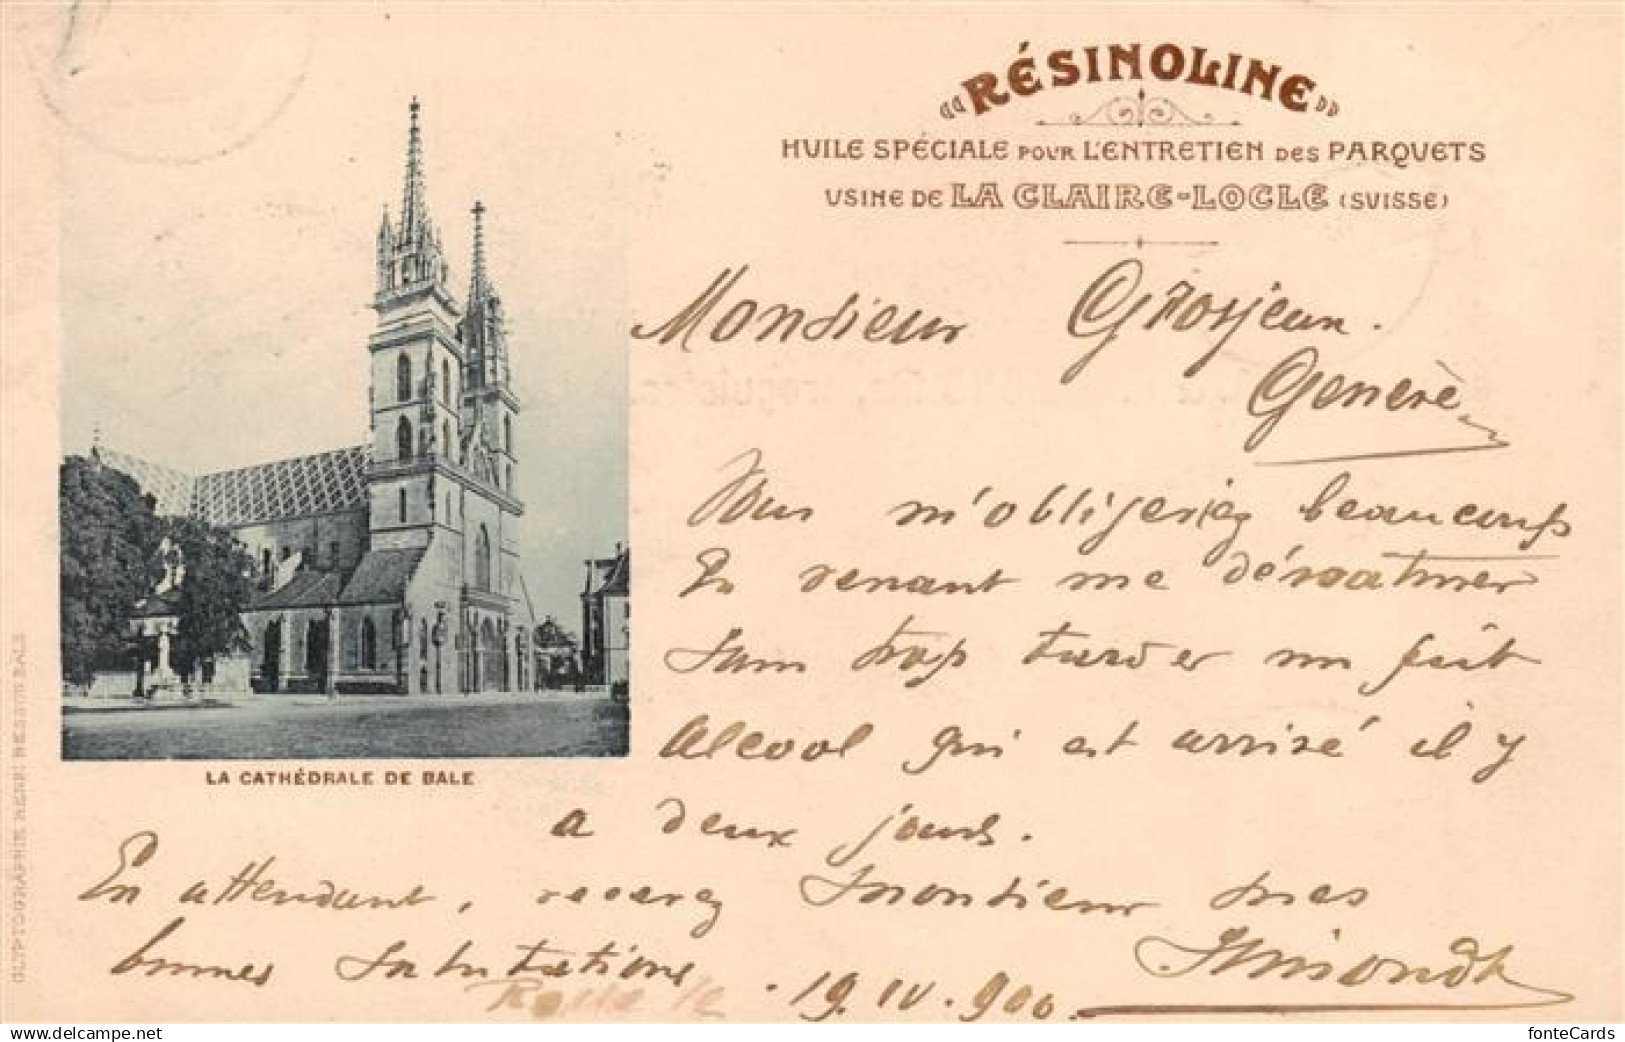 « RÉSINOLINE »
HUILE SPÉCIALE POUR L'ENTRETIEN DES PARQUETS
USINE DE LA CLAIRE-LOCLE (SUISSE)
Monsieur Grosjean.
Genève
Vous m'obligeriez beaucoup
En venant me dénaturer
sans trop tarder un fût
alcool qui est arrivé il y
a deux jours.
En attendant, recevez Monsieur mes
bonnes Salutations
. 19. IV. 900.
LA CATHÉDRALE DE BALE
GLYPTOGRAPHIE HENRI BESSON BALE
www.delcampe.net
fonteCards